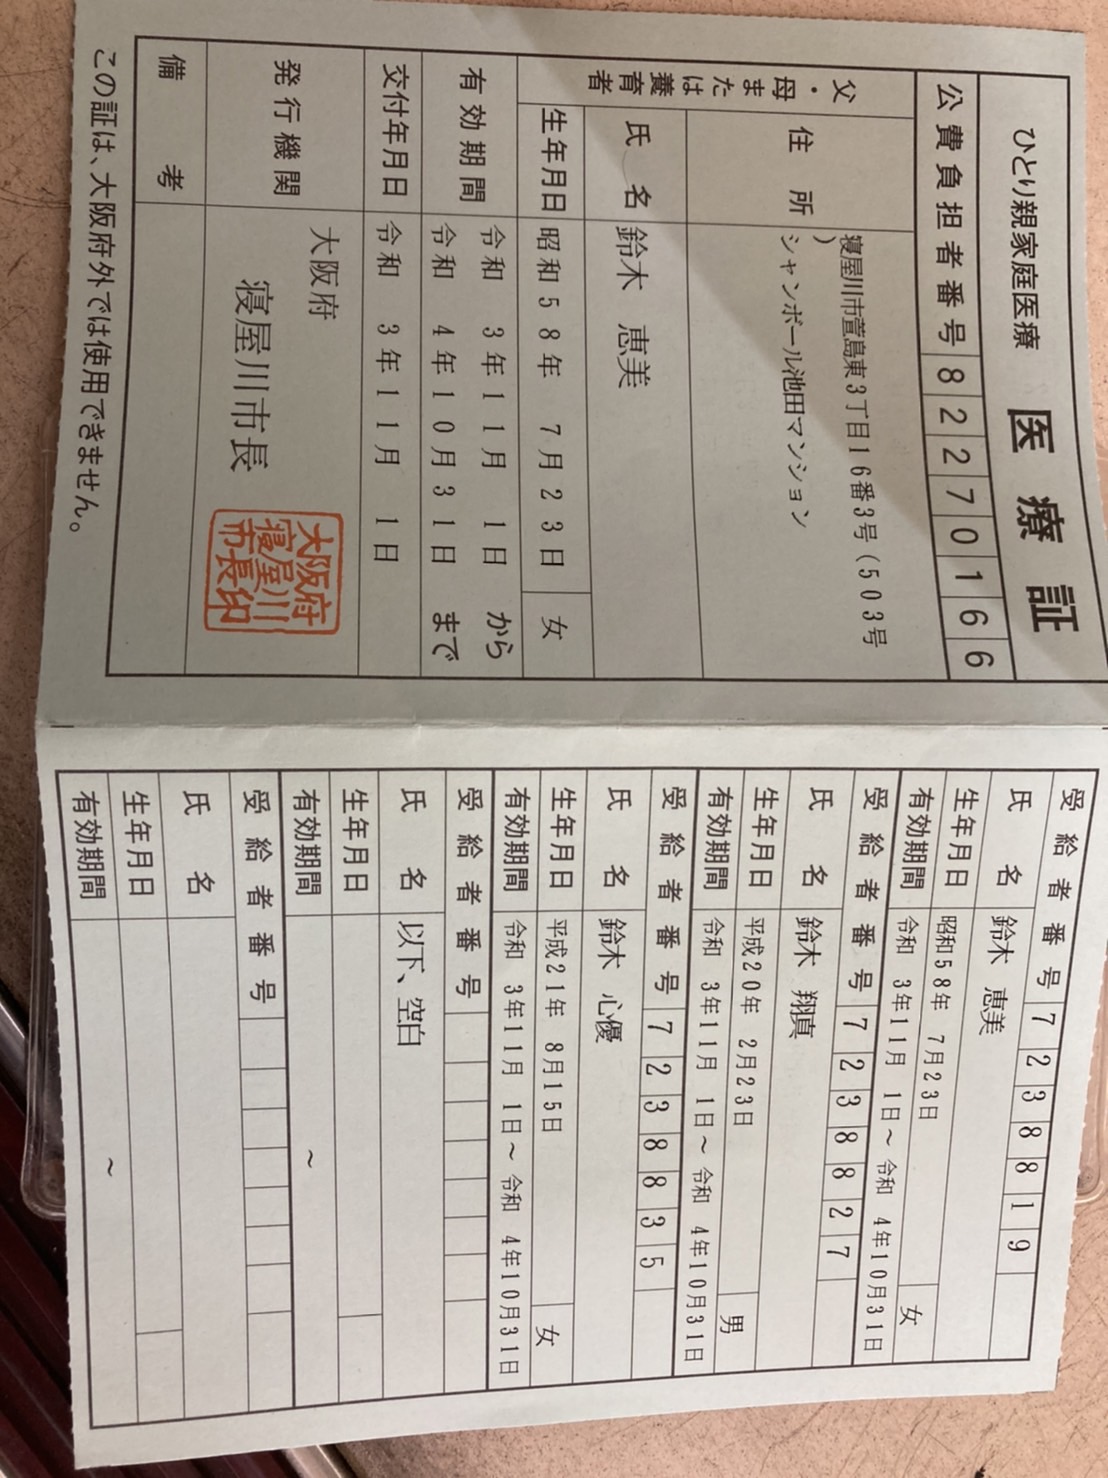 ひとり親家庭医療 医療証
公費負担者番号 82270166
父・母または養育者
住所 寝屋川市萱島東3丁目16番3号(503号
)
シャンボール池田マンション
氏名 鈴木 恵美
生年月日 昭和58年 7月23日 女
有効期間 令和 3年11月 1日 から
令和 4年10月31日 まで
交付年月日 令和 3年11月 1日
発行機関 大阪府
寝屋川市長
大阪府
寝屋川
市長印
備考
この証は、大阪府外では使用できません。
受給者番号 7238819
氏名 鈴木 恵美
生年月日 昭和58年 7月23日 女
有効期間 令和 3年11月 1日~令和 4年10月31日
受給者番号 7238827
氏名 鈴木 翔真
生年月日 平成20年 2月23日 男
有効期間 令和 3年11月 1日~令和 4年10月31日
受給者番号 7238835
氏名 鈴木 心優
生年月日 平成21年 8月15日 女
有効期間 令和 3年11月 1日~令和 4年10月31日
受給者番号
氏名 以下、空白
生年月日
有効期間 ~
受給者番号
氏名
生年月日
有効期間 ~